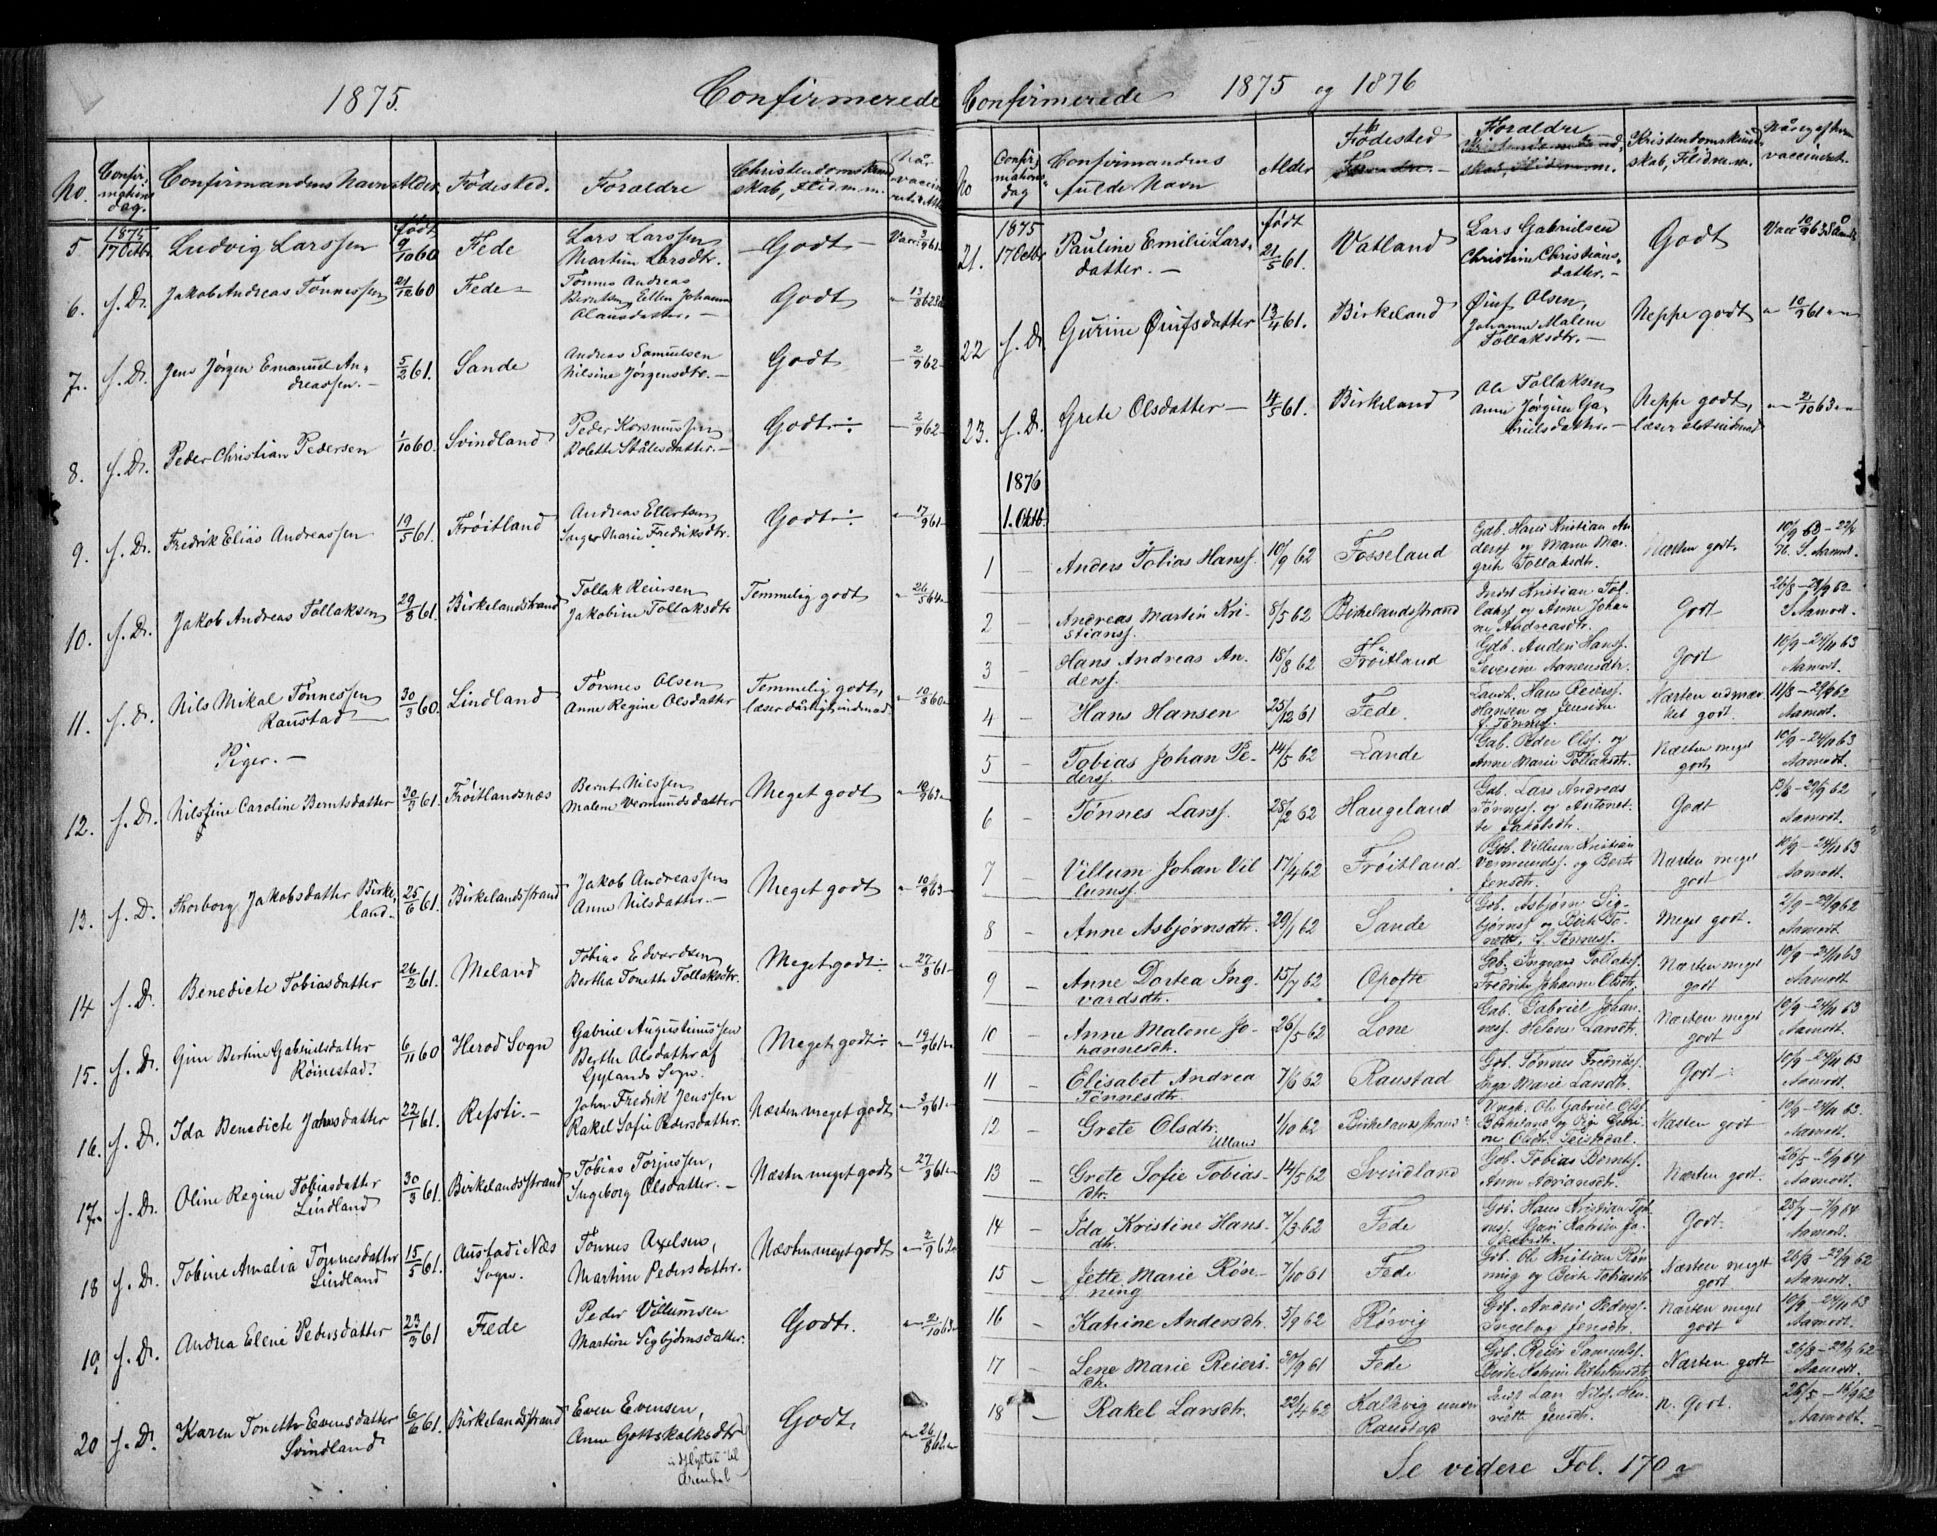 1875.
Confirmerede
No. Confirmations dag. Confirmandens Navn Alder Fødested. Forældre Christendomskundskab, Flid m.m.
5 1875 17 Octbr. Ludvig Larssen født 9/10 60 Fede Lars Larssen Martine Larsdtr. Godt
6. s. D. Jakob Andreas Tønnessen 21/12 60 Fede Tønnes Andreas Berntsen, Ellen Johanne Olausdatter. Godt
7. s. D. Jens Jørgen Emanuel Andreassen. 5/2 61. Sande Andreas Samuelsen Nilsine Jørgensdtr. Godt 2/9 62
8. s. D. Peder Christian Pedersen 1/10 60. Svindland Peder Rasmussen Bolette Stålesdatter. Godt 2/9 62
9. s. D. Fredrik Elias Andreassen 19/5 61. Frøitland Andreas Ellertsen Inger Marie Fredriksdtr. Godt 17/9 61
10. s. D. Jakob Andreas Tollaksen 29/8 61. Birkelandstrand Tollak Reiersen Jakobine Tollaksdtr Temmelig godt 26/5 64
11. s. D. Nils Mikal Tønnessen Raustad 30/3 60. Lindland Tønnes Olsen Anne Regine Olsdatter Temmelig godt, læser dårlig indenad 10/8 60
Piger.
12. s. D. Nilsine Caroline Berntsdatter 30/3 61. Frøitlandsnæs Bernt Nilssen Malene Vermundsdatter Meget godt 10/9 63
13. s. D. Thorborg Jakobsdatter Birkeland. 25/6 61. Birkelandsstrand Jakob Andreassen Anne Nilsdatter. Meget godt 10/9 63
14 s. D. Benedicte Tobiasdatter 26/2 61. Meland Tobias Edvardsen Bertha Tonette Tollaksdtr. Meget godt 27/8 61
15. s. D. Gine Bertine Gabrielsdatter Røinestad. 6/11 60 Herod Sogn Gabriel Augustinussen Berthe Olsdatter af Gylands Sogn. Meget godt 19/9 61
16. s. D. Ida Benedicte Johnsdatter 22/1 61. Refsti. John Fredrik Jenssen Rakel Sofie Pedersdatter. Næsten meget godt 2/9 61
17. s. D. Oline Regine Tobiasdatter Lindland 30/3 61. Birkelandsstrand Tobias Torjussen, Ingeborg Olsdatter. Næsten meget godt 27/8 61
18 s. D. Tobine Amalia Tønnesdatter Lindland 15/5 61. Austad i Næs Sogn. Tønnes Axelsen, Martine Pedersdatter. Næsten meget godt 2/9 62
19 s. D. Andrea Elene Pedersdatter 23/3 61 Fede Peder Villumsen Martine Sigbjørnsdatter. Godt. 2/10 63
20 s. D. Karen Tonette Evensdatter Svindland 6/6 61. Birkelandsstrand Even Evensen, Anne Gottskalksdtr Godt. 26/8 62
udflyttet til Arendal
Confirmerede 1875 og 1876
No Confirmations dag Confirmandens fulde Navn Alder Fødested Forældre Kristendomskundskab, Flid m.m. Når og af hvem vaccineret.
21. 1875 17 Octbr Pauline Emilie Larsdatter. født 21/5 61. Vatland Lars Gabrielsen Christine Christiansdatter. Godt
22 s. D. Gurine Øiufsdatter 13/4 61. Birkeland Øiuf Olsen, Johanne Malene Tollaksdtr. Neppe godt 10/9 61
23. s. D. Grete Olsdatter 4/5 61. Birkeland Ole Tollaksen Anne Jørgine Gabrielsdatter. Neppe godt, læser slet indenad 21/10 63
1876
1. Oktb.
1 Anders Tobias Hanss. 10/9 62 Fosseland Gdb. Hans Kristian Anderss og Maren Margrete Tollaksdtr. Næsten godt. Aamodt.
2 Andreas Martin Kristianss. 8/5 62 Birkelandsstrand Kristian Tollakss og Anne Johanne Andreasdtr. Godt 26/8 - 29/9 62 Aamodt.
3 Hans Andreas Anderss. 18/8 62 Frøitland Gdb. Anders Hanss. Severine Aanensdtr. Godt 10/9 - 24/11 63 Aamodt.
4 Hans Hansen 25/12 61 Fede. Hans Reierss. Hansen og f. Tønness. Næsten udmærket godt. 11/8 - 29/9 62 Aamodt.
5 Tobias Johan Pederss. 14/5 62 Lande Gdb. Peder Olss. og Anne Marie Tollaksdtr. Næsten meget godt 10/9 - 24/11 63 Aamodt.
6 Tønnes Larss. 28/2 62 Haugeland Gdb. Lars Andreas Tønness. og Antonette Jakobsdtr. Godt 29/9 62 Aamodt.
7 Villum Johan Villumss. 17/4 62 Frøitland. Gdb. Villum Kristian Vermundss. og Berte Jensdtr. Næsten meget godt 10/9 - 24/11 63 Aamodt.
8 Anne Asbjørnsdtr. 29/1 62 Sande Gdb. Asbjørn Sigbjørnss og Berte Tonette, f. Tønness. Meget godt. 2/9 - 29/9 62 Aamodt.
9 Anne Dortea Ingvardsdtr. 15/7 62 Opofte Gdb. Ingvard Tollakss. Fredrikke Johanne Olsdtr. Næsten meget godt 10/9 - 24/11 63 Aamodt.
10 Anne Malene Johannesdtr. 26/5 62 Lone Gdb. Gabriel Johanness. Helene Larsdtr. Næsten meget godt 10/9 - 24/11 63 Aamodt.
11 Elisabet Andrea Tønnesdtr. 7/6 62 Raustad Gdb. Tønnes Inga Marie Larsdtr. Godt 10/9 - 24/11 63 Aamodt.
12 Grete Olsdtr. Ulland 1/10 62 Birkelandsstrand Ungk. Ole Gabriel Olss. Birkeland og Pige Olsdtr. Næsten godt 10/9 - 24/11 63. Aamodt.
13 Grete Sofie Tobiasdtr. 14/5 62 Svindland Gdb. Tobias Berntss. Anne Adriansdtr. Næsten godt. Aamodt.
14 Ida Kristine Hansdtr. 7/3 62 Fede Gdb. Hans Kristian Katrine Jakobsdtr. Godt. Aamodt.
15 Jette Marie Rønning 7/10 61 Fede Gdb. Ole Kristian Rønning og Berte Tobiasdtr Næsten meget godt 26/8 - 29/9 62 Aamodt.
16 Katrine Andersdtr. 5/9 62 Rørvig Gdb. Anders Pederss. Ingeborg Jensdtr. Næsten meget godt 10/9 - 24/11 63 Aamodt.
17 Lene Marie Reiersdtr. 30/9 61 Fede Gdb. Reier Samuelss. Berte Katrine Vilhelmsdtr. Næsten godt 26/8 - 29/9 62 Aamodt.
18 Rakel Larsdtr. 22/4 62 Kalkvig under Raustad Lars Nilss. Henriette Jensdtr. N. Godt. Aamodt.
Se videre Fol. 170 a